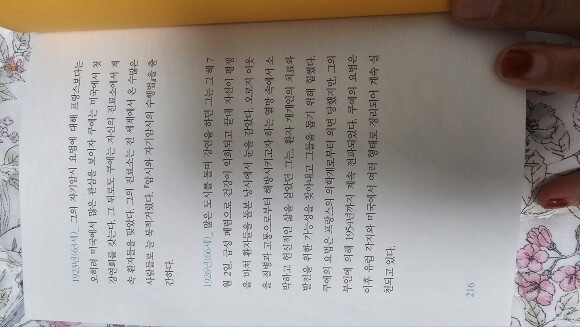 1923년(66세)_ 그의 자기암시 요법에 대해 프랑스보다는
오히려 미국에서 많은 관심을 보이자 쿠에는 미국에서 첫
강연회를 갖는다. 그 뒤로도 쿠에는 자신의 진료소에서 계
속 환자들을 맞았다. 그의 진료소는 전 세계에서 온 수많은
사람들로 늘 북적거렸다. 『암시와 자기암시의 수행법』을 출
간하다.
1926년(69세)_ 많은 도시를 돌며 강연을 하던 그는 그 해 7
월 2일, 급성 폐렴으로 건강이 악화되고 끝내 자신이 평생
을 바쳐 환자들을 돌본 낭시에서 눈을 감았다. 오로지 이웃
을 질병과 고통으로부터 해방시키고자 하는 열망 속에서 소
박하고 헌신적인 삶을 살았던 그는, 환자 개개인의 치료와
발전을 위한 가능성을 찾아내고 그들을 돕기 위해 힘썼다.
쿠에의 요법은 프랑스의 의학계로부터 외면 당했지만, 그의
부인에 의해 1954년까지 계속 전파되었다. 쿠에의 요법은
이후 유럽 각지와 미국에서 여러 형태로 정리되어 계속 실
천되고 있다.
216